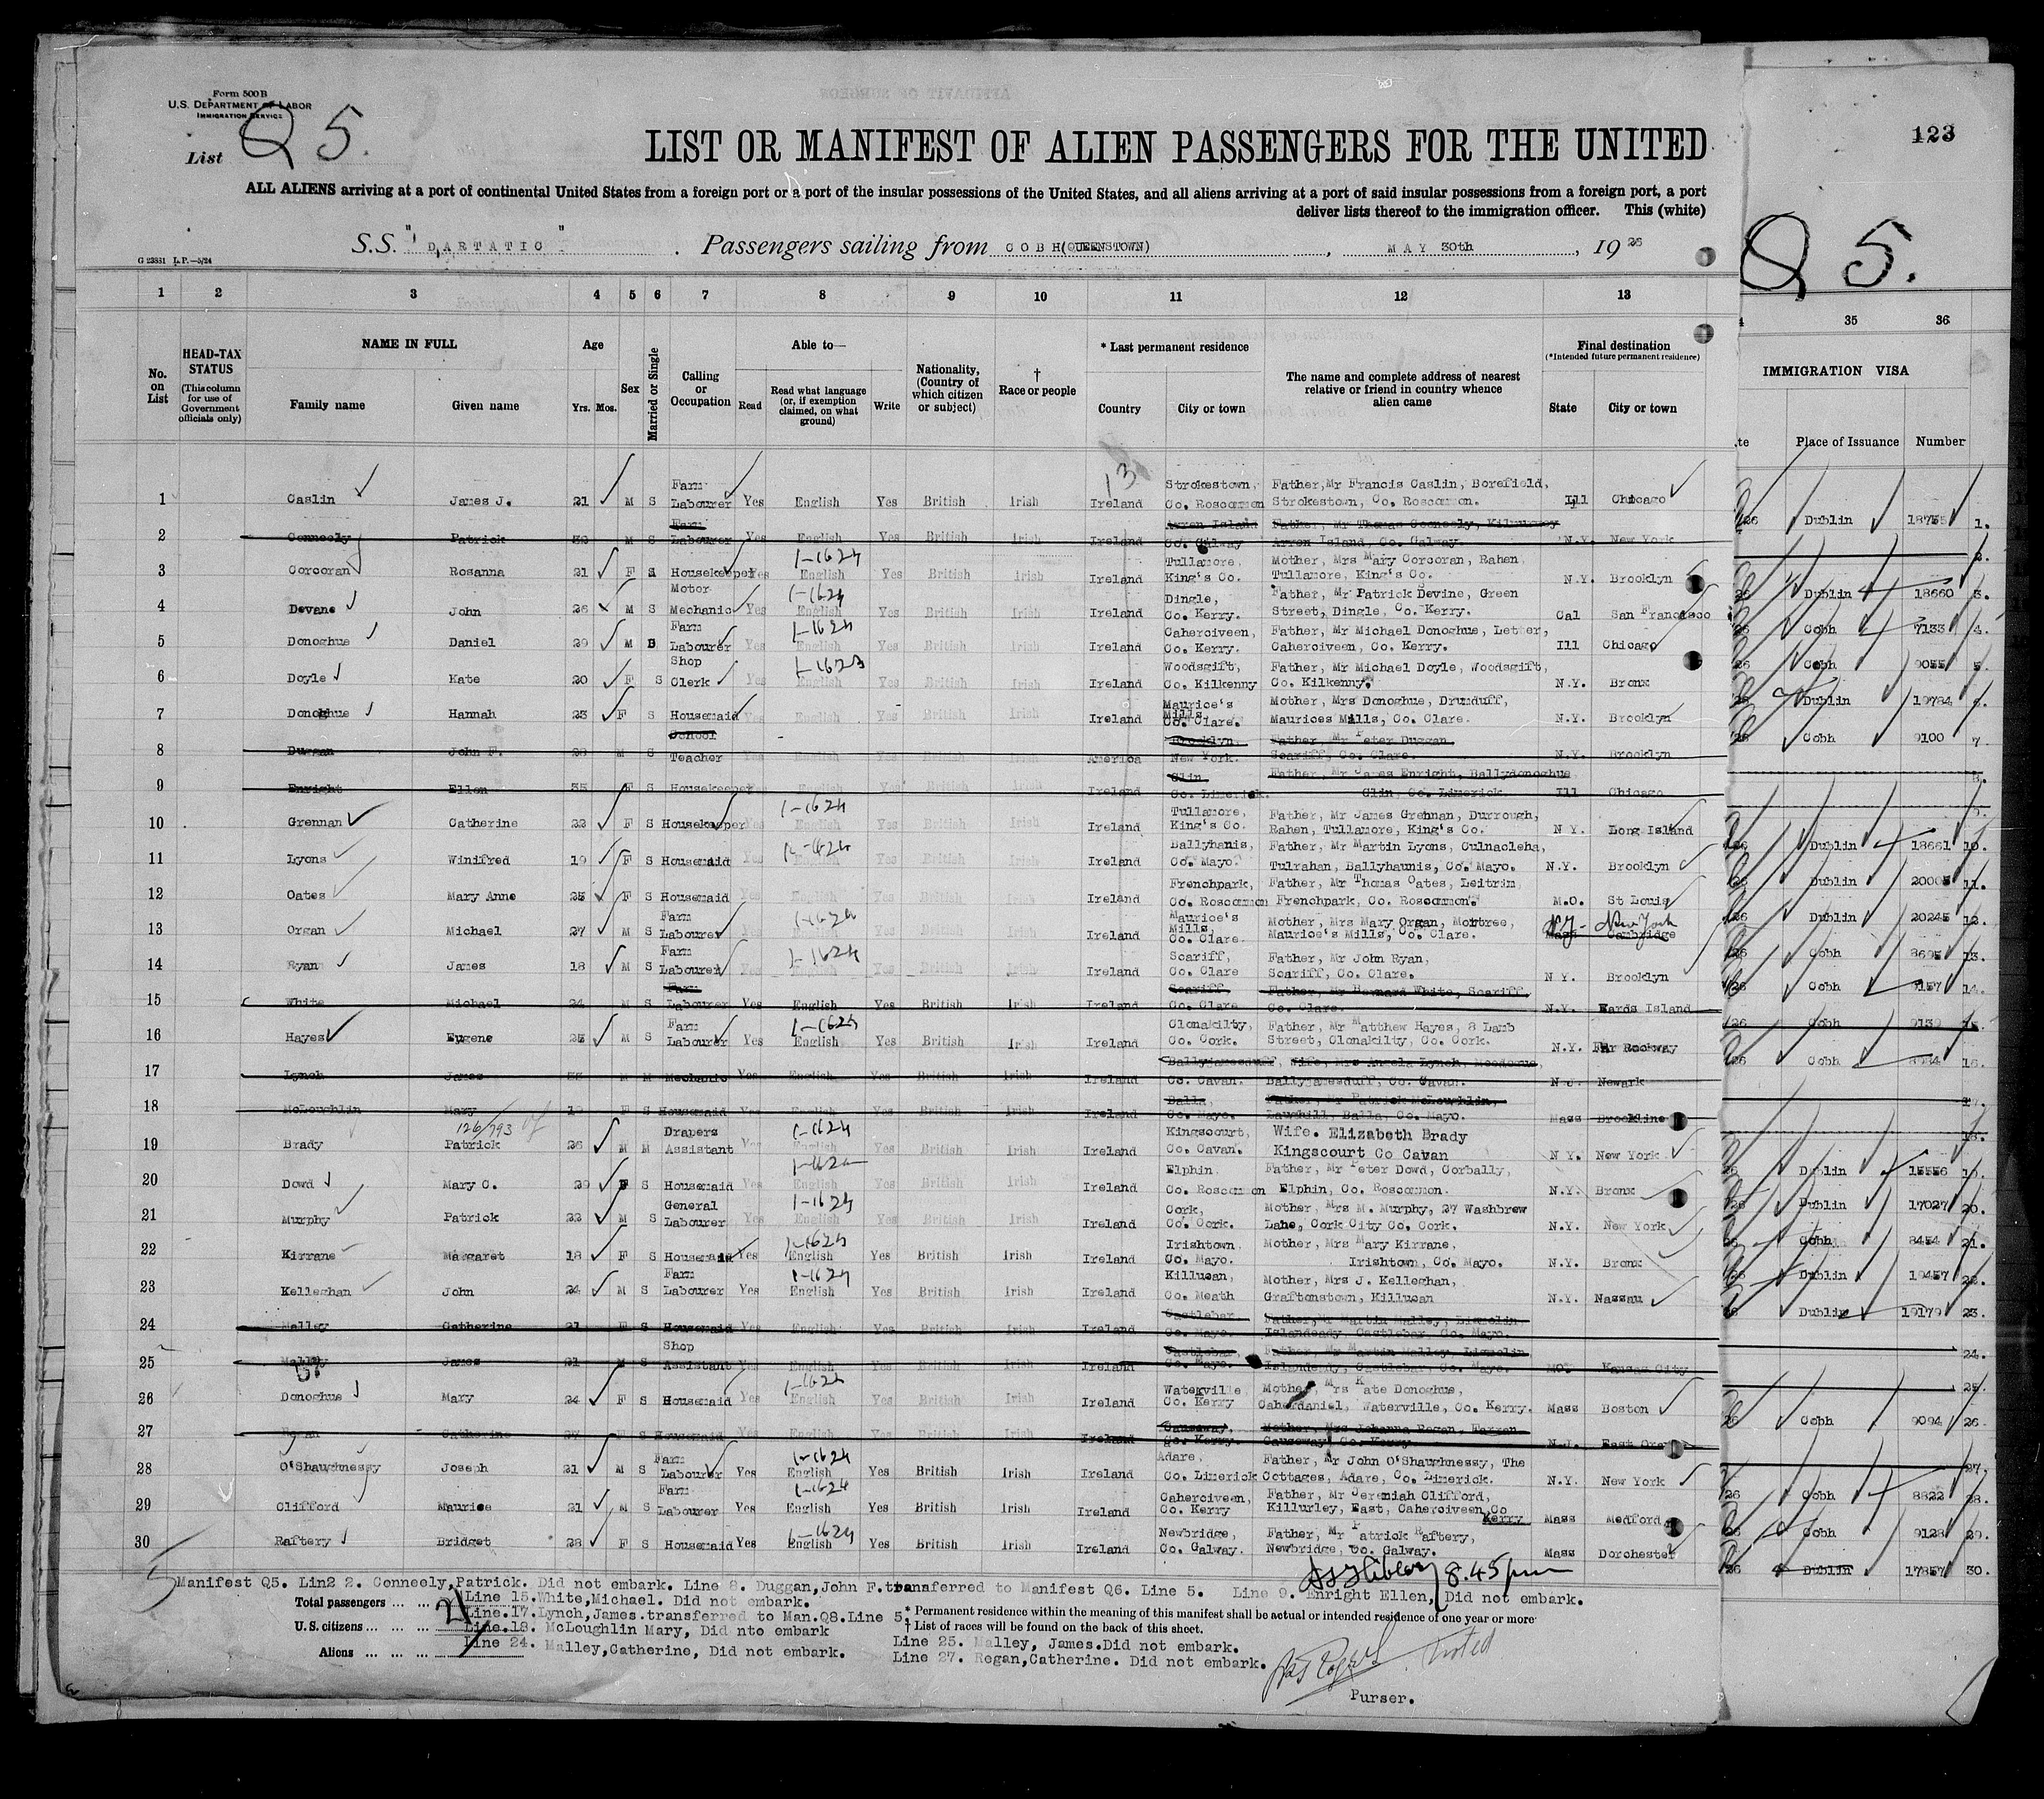 Form 500B
U.S. DEPARTMENT OF LABOR
IMMIGRATION SERVICE
List Q 5.
LIST OR MANIFEST OF ALIEN PASSENGERS FOR THE UNITED
123
ALL ALIENS arriving at a port of continental United States from a foreign port or a port of the insular possessions of the United States, and all aliens arriving at a port of said insular possessions from a foreign port, a port
deliver lists thereof to the immigration officer. This (white)
Q 5.
S.S. " DARTATIC " . Passengers sailing from COBH(QUEENSTOWN) , MAY 30th , 19 26
G 23881 L.P.—5/24
1 2 3 4 5 6 7 8 9 10 11 12 13 35 36
No. on List
HEAD-TAX STATUS
(This column for use of Government officials only)
NAME IN FULL
Family name Given name
Age
Yrs. Mos.
Sex
Married or Single
Calling or Occupation
Able to—
Read
Read what language (or, if exemption claimed, on what ground)
Write
Nationality, (Country of which citizen or subject)
† Race or people
* Last permanent residence
Country City or town
The name and complete address of nearest relative or friend in country whence alien came
Final destination
(*Intended future permanent residence)
State City or town
IMMIGRATION VISA
Place of Issuance Number
13
1 Caslin James J. 21 M S Farm Labourer Yes English Yes British Irish Ireland Strokestown, Co. Roscommon Father, Mr Francis Caslin, Borefield, Strokestown, Co. Roscommon. Ill Chicago 26 Dublin 1.
2 Conneely Patrick M S Farm Labourer Yes English Yes British Irish Ireland Arren Island Co. Galway Father, Mr Thomas Conneely, Arren Island, Co. Galway. N.Y. New York 2.
3 Corcoran Rosanna 21 F S Housekeeper Yes 1-1624 English Yes British Irish Ireland Tullamore, King's Co. Mother, Mrs Mary Corcoran, Rahen Tullamore, King's Co. N.Y. Brooklyn 26 Dublin 18660 3.
4 Devane John 26 M S Motor Mechanic Yes 1-1624 English Yes British Irish Ireland Dingle, Co. Kerry. Father, Mr Patrick Devine, Green Street, Dingle, Co. Kerry. Cal San Francisco 26 Cobh 7133 4.
5 Donoghue Daniel 29 M S Farm Labourer Yes 1-1624 English Yes British Irish Ireland Caherciveen, Co. Kerry. Father, Mr Michael Donoghue, Letter, Caherciveen, Co. Kerry. Ill Chicago 26 Cobh 9055 5.
6 Doyle Kate 20 F S Shop Clerk Yes English Yes British Irish Ireland Woodsgift, Co. Kilkenny Father, Mr Michael Doyle, Woodsgift, Co. Kilkenny. N.Y. Bronx 26 Dublin 19784 6.
7 Donoghue Hannah 23 F S Housemaid Yes English Yes British Irish Ireland Maurice's Mills, Co. Clare. Mother, Mrs Donoghue, Drumduff, Maurices Mills, Co. Clare. N.Y. Brooklyn 26 Cobh 9100 7.
8 Duggan John F. M S School Teacher Yes English Yes British Irish America Brooklyn. New York. Father, Mr Peter Duggan Scariff, Co. Clare. N.Y. Brooklyn 8.
9 Enright Ellen 35 F S Housekeeper Yes English Yes British Irish Ireland Glin Co. Limerick. Father, Mr James Enright, Ballydonoghue Glin, Co. Limerick. Ill Chicago 9.
10 Grennan Catherine 22 F S Housekeeper Yes 1-1624 English Yes British Irish Ireland Tullamore, King's Co. Father, Mr James Grennan, Durrough, Rahen, Tullamore, King's Co. N Y. Long Island 26 Dublin 18661 10.
11 Lyons Winifred 19 F S Housemaid Yes English Yes British Irish Ireland Ballyhanis, Co. Mayo. Father, Mr Martin Lyons, Culnacleha, Tulrahan, Ballyhaunis, Co. Mayo. N.Y. Brooklyn 26 Dublin 20005 11.
12 Oates Mary Anne 25 F S Housemaid Yes English Yes British Irish Ireland Frenchpark, Co. Roscommon Father, Mr Thomas Oates, Leitrim Frenchpark, Co. Roscommon. M.O. St Louis 26 Dublin 20245 12.
13 Organ Michael 27 M S Farm Labourer Yes 1-1624 English Yes British Irish Ireland Maurice's Mills, Co. Clare. Mother, Mrs Mary Organ, Mortree, Maurice's Mills, Co. Clare. Mass Cambridge NY - New York 26 Cobh 8695 13.
14 Ryan James 18 M S Farm Labourer Yes 1-1624 English Yes British Irish Ireland Scariff, Co. Clare Father, Mr John Ryan, Scariff, Co. Clare. N Y. Brooklyn 26 Cobh 9157 14.
15 White Michael 24 M S Farm Labourer Yes English Yes British Irish Ireland Scariff Co. Clare Father, Mr Bernard White, Scariff, Co. Clare. N.Y. Island 26 Cobh 9139 15.
16 Hayes Eugene 25 M S Farm Labourer Yes 1-1624 English Yes British Irish Ireland Clonakilty, Co. Cork. Father, Mr Matthew Hayes, 8 Lamb Street, Clonakilty, Co. Cork. N.Y. Far Rockway 26 Cobh 16.
17 Lynch James M M Mechanic Yes English Yes British Irish Ireland Ballyjamesduff, Co. Cavan. Wife, Mrs Angela Lynch, Ballyjamesduff, Co. Cavan. N J. Newark 17.
18 McLoughlin Mary 19 F S Housemaid Yes English Yes British Irish Ireland Balla, Co. Mayo. Father, Mr Patrick McLoughlin, Balla, Co. Mayo. Mass Brookline 18.
126/793
19 Brady Patrick 26 M M Drapers Assistant Yes 1-1624 English Yes British Irish Ireland Kingscourt, Co. Cavan. Wife. Elizabeth Brady Kingscourt Co Cavan N Y. New York 26 Dublin 15556 19.
20 Dowd Mary C. 29 F S Housemaid Yes English Yes British Irish Ireland Elphin. Co. Roscommon Father, Mr Peter Dowd, Corbally, Elphin, Co. Roscommon. N.Y. Bronx 26 Dublin 17027 20.
21 Murphy Patrick 22 M S General Labourer Yes 1-1624 English Yes British Irish Ireland Cork, Co. Cork. Mother, Mrs M. Murphy, 27 Washbrew Lane, Cork City Co. Cork. N.Y. New York 26 Cobh 8454 21.
22 Kirrane Margaret 18 F S Housemaid Yes 1-1624 English Yes British Irish Ireland Irishtown, Co. Mayo. Mother, Mrs Mary Kirrane, Irishtown, Co. Mayo. N.Y. Bronx 26 Dublin 19457 22.
23 Kelleghan John 24 M S Farm Labourer Yes 1-1624 English Yes British Irish Ireland Killucan, Co. Meath Mother, Mrs J. Kelleghan, Graftonstown, Killucan N.Y. Nassau 26 Dublin 19179 23.
24 Malley Catherine 21 F S Housemaid Yes English Yes British Irish Ireland Castlebar Co. Mayo. Father, Mr Martin Malley, Islandeady Castlebar, Co. Mayo. 24.
25 Malley James 21 M S Shop Assistant Yes English Yes British Irish Ireland Castlebar Co. Mayo. Father, Mr Martin Malley, Islandeady, Castlebar, Co. Mayo. MO. Kansas City 25.
26 Donoghue Mary 24 F S Housemaid Yes 1-1624 English Yes British Irish Ireland Waterville Co. Kerry Mother, Mrs Kate Donoghue, Caherdaniel, Waterville, Co. Kerry. Mass Boston 26 Cobh 9094 26.
27 Regan Catherine 27 F S Housemaid Yes English Yes British Irish Ireland Causeway, Co. Kerry. Mother, Mrs Johanna Regan, Causeway, Co. Kerry. N.J. East 27.
28 O'Shaughnessy Joseph 21 M S Farm Labourer Yes 1-1624 English Yes British Irish Ireland Adare, Co. Limerick Father, Mr John O'Shaughnessy, The Cottages, Adare, Co. Limerick. N.Y. New York 26 Cobh 8822 28.
29 Clifford Maurice 21 M S Farm Labourer Yes 1-1624 English Yes British Irish Ireland Caherciveen, Co. Kerry Father, Mr Jeremiah Clifford, Killurley, East, Caherciveen, Co Kerry Mass Medford 26 Cobh 9128 29.
30 Raftery Bridget 28 F S Housemaid Yes 1-1624 English Yes British Irish Ireland Newbridge, Co. Galway. Father, Mr Patrick Raftery, Newbridge, Co. Galway. Mass Dorchester 26 Dublin 17857 30.
8.45 pm
Manifest Q5. Lin2 2. Conneely,Patrick. Did not embark. Line 8. Duggan,John F. transferred to Manifest Q6. Line 5. Line 9. Enright Ellen, Did not embark.
Total passengers ... ... ... 21 Line 15.White,Michael. Did not embark.
Line.17.Lynch,James.transferred to Man.Q8.Line 5.
* Permanent residence within the meaning of this manifest shall be actual or intended residence of one year or more
U.S. citizens ... ... ... Line.18. McLoughlin Mary, Did nto embark
† List of races will be found on the back of this sheet.
Aliens ... ... ... Line 24. Malley,Catherine, Did not embark.
Line 25. Malley, James.Did not embark.
Line 27. Regan,Catherine. Did not embark.
Purser.